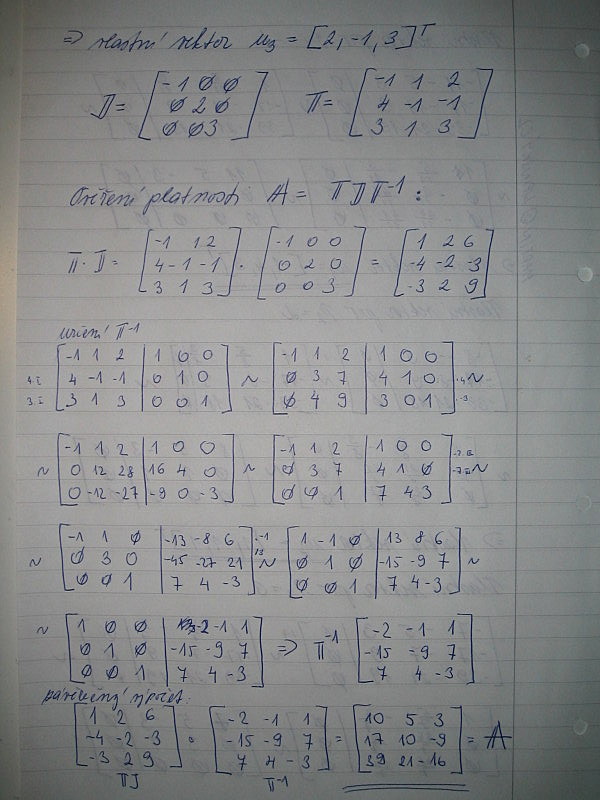 => vlastní vektor u₃ = [2, -1, 3]ᵀ
D = [-1 0 0; 0 2 0; 0 0 3] T = [-1 1 2; 4 -1 -1; 3 1 3]
Ověření platnosti A = T D T⁻¹ :
T · D = [-1 1 2; 4 -1 -1; 3 1 3] · [-1 0 0; 0 2 0; 0 0 3] = [1 2 6; -4 -2 -3; -3 2 9]
určení T⁻¹
[-1 1 2 | 1 0 0; 4 -1 -1 | 0 1 0; 3 1 3 | 0 0 1] ~ [-1 1 2 | 1 0 0; 0 3 7 | 4 1 0; 0 4 9 | 3 0 1] ·4 ·-3 ~
~ [-1 1 2 | 1 0 0; 0 12 28 | 16 4 0; 0 -12 -27 | -9 0 -3] ~ [-1 1 2 | 1 0 0; 0 3 7 | 4 1 0; 0 0 1 | 7 4 3] ~
~ [-1 1 0 | -13 -8 6; 0 3 0 | -45 -27 21; 0 0 1 | 7 4 -3] ~ [1 -1 0 | 13 8 6; 0 1 0 | -15 -9 7; 0 0 1 | 7 4 -3] ~
~ [1 0 0 | -2 -1 1; 0 1 0 | -15 -9 7; 0 0 1 | 7 4 -3] => T⁻¹ [-2 -1 1; -15 -9 7; 7 4 -3]
[1 2 6; -4 -2 -3; -3 2 9] · [-2 -1 1; -15 -9 7; 7 4 -3] = [10 5 3; 17 10 -9; 39 21 -16] = A
TD T⁻¹